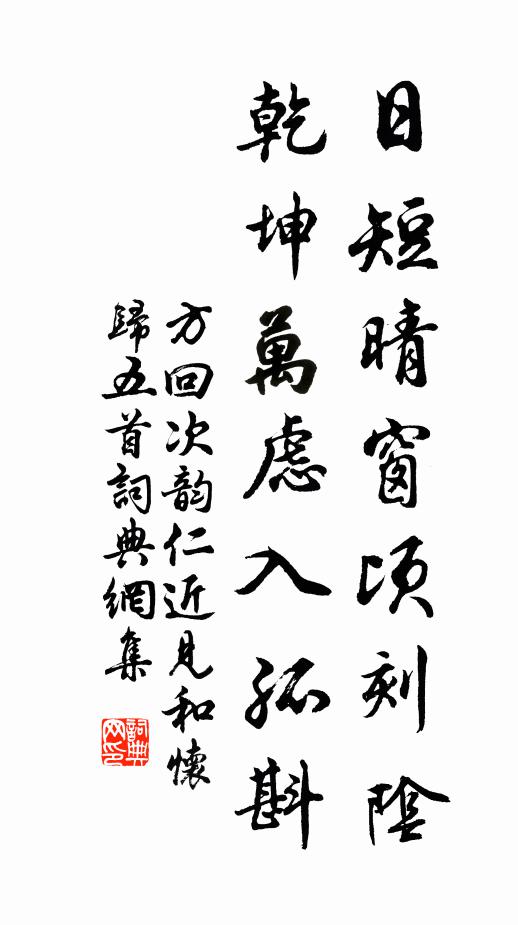 日短晴窗頃刻陰
乾坤萬慮入孤斟
方回次韵仁近見和懷
歸五首詞典網集
詞典
网印